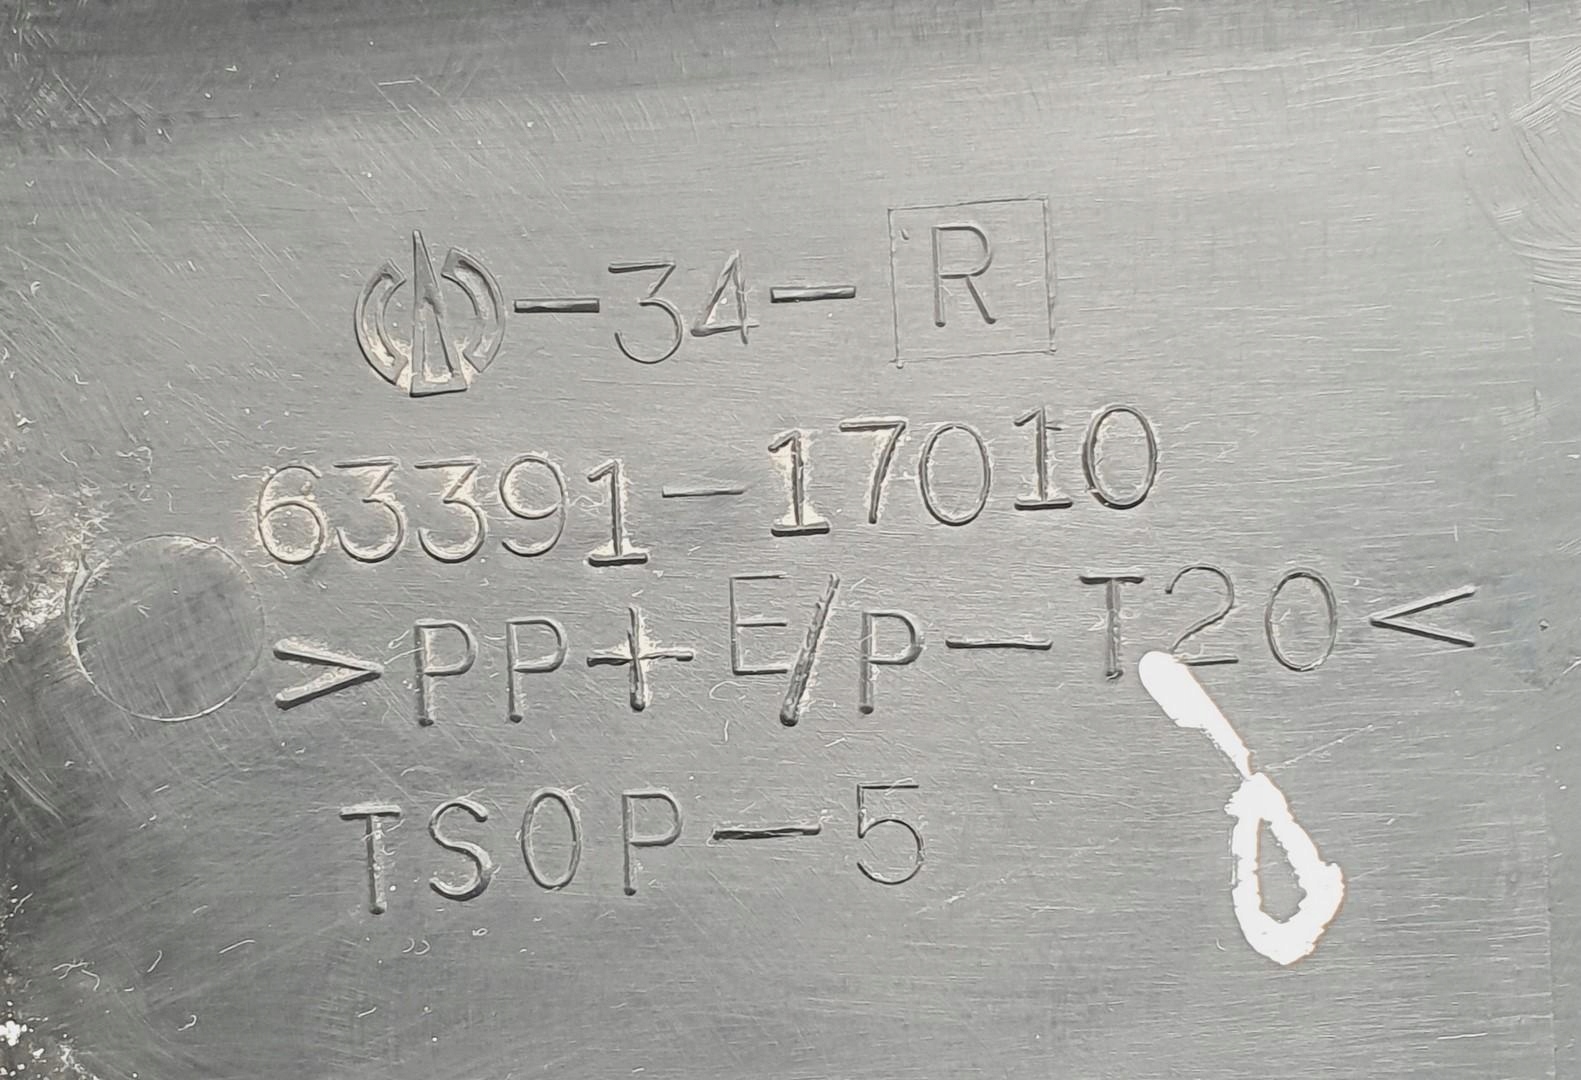 -34-R
63391-17010
>PP+E/P-T20<
TSOP-5